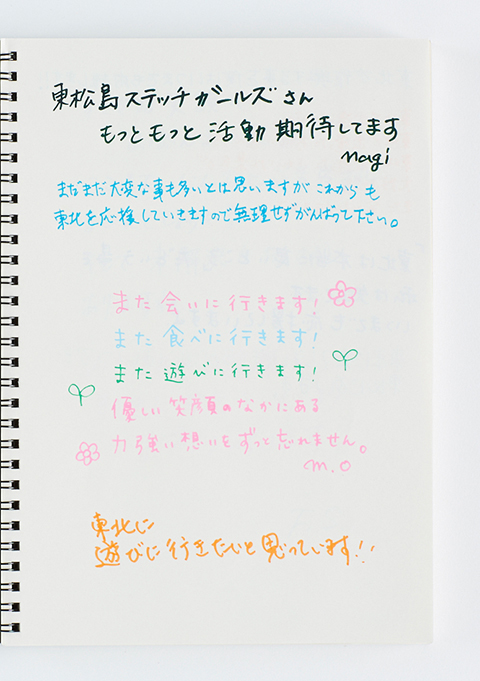 東松島ステッチガールズさん
もっともっと活動期待してます
nagi
まだまだ大変な事も多いとは思いますがこれからも
東北を応援していきますので無理せずがんばって下さい。
また会いに行きます!
また食べに行きます!
また遊びに行きます!
優しい笑顔のなかにある
力強い想いをずっと忘れません。
m.o
東北に
遊びに行きたいと思っています!!